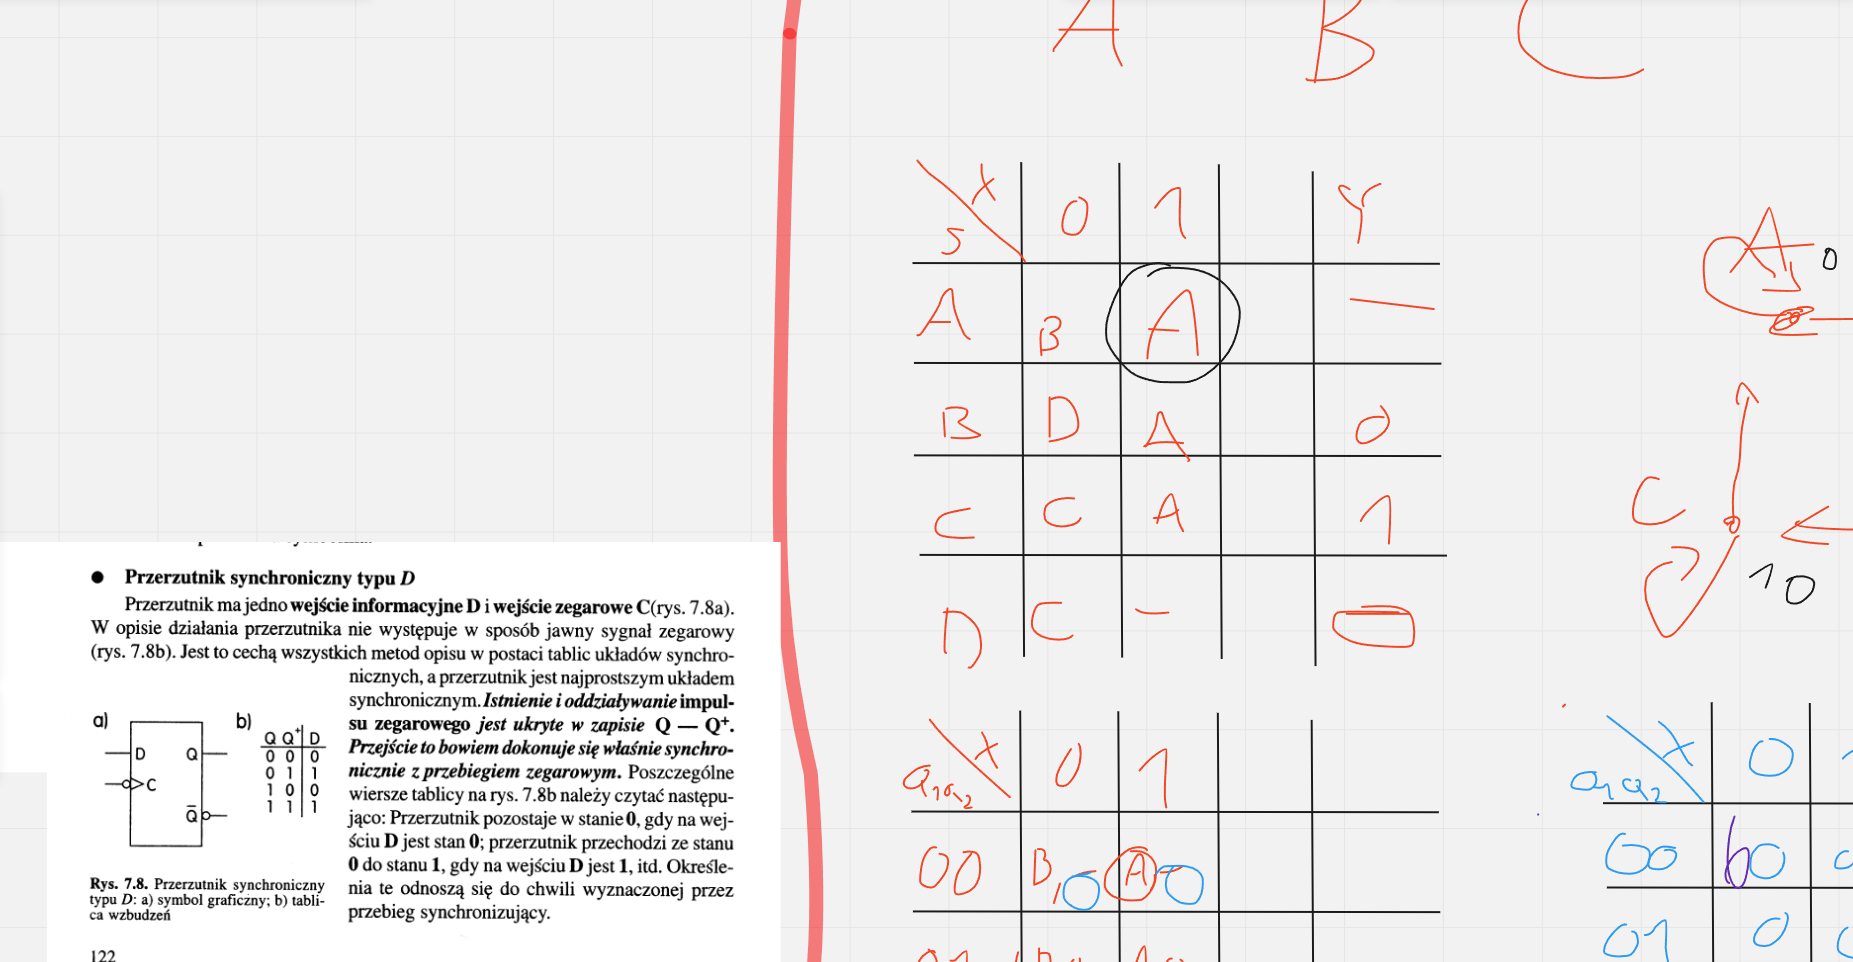 A B C
S X 0 1 Y
A B A —
B D A 0
C C A 1
D C — —
A 1 0
C
10
● Przerzutnik synchroniczny typu D
Przerzutnik ma jedno wejście informacyjne D i wejście zegarowe C(rys. 7.8a).
W opisie działania przerzutnika nie występuje w sposób jawny sygnał zegarowy
(rys. 7.8b). Jest to cechą wszystkich metod opisu w postaci tablic układów synchro-
nicznych, a przerzutnik jest najprostszym układem
synchronicznym. Istnienie i oddziaływanie impul-
su zegarowego jest ukryte w zapisie Q — Q⁺.
Przejście to bowiem dokonuje się właśnie synchro-
nicznie z przebiegiem zegarowym. Poszczególne
wiersze tablicy na rys. 7.8b należy czytać następu-
jąco: Przerzutnik pozostaje w stanie 0, gdy na wej-
ściu D jest stan 0; przerzutnik przechodzi ze stanu
0 do stanu 1, gdy na wejściu D jest 1, itd. Określe-
nia te odnoszą się do chwili wyznaczonej przez
przebieg synchronizujący.
a)
D Q
C
Q̄
b)
Q Q⁺ D
0 0 0
0 1 1
1 0 0
1 1 1
Rys. 7.8. Przerzutnik synchroniczny
typu D: a) symbol graficzny; b) tabli-
ca wzbudzeń
122
Q₁Q₂ X 0 1
00 B,0 A 0
Q₁Q₂ X 0
00 0
01 0